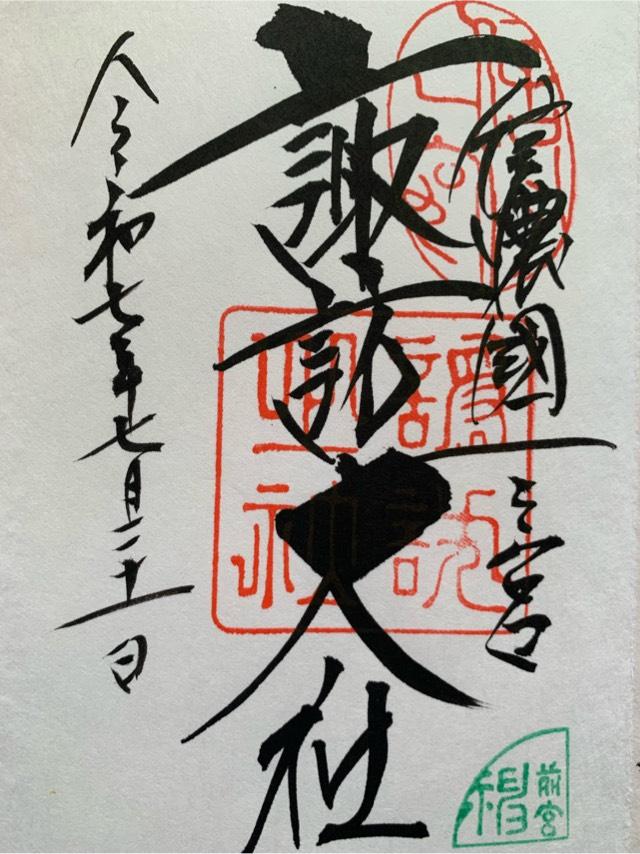 信濃國一之宮
諏訪大社
令和七年七月二十一日
前宮